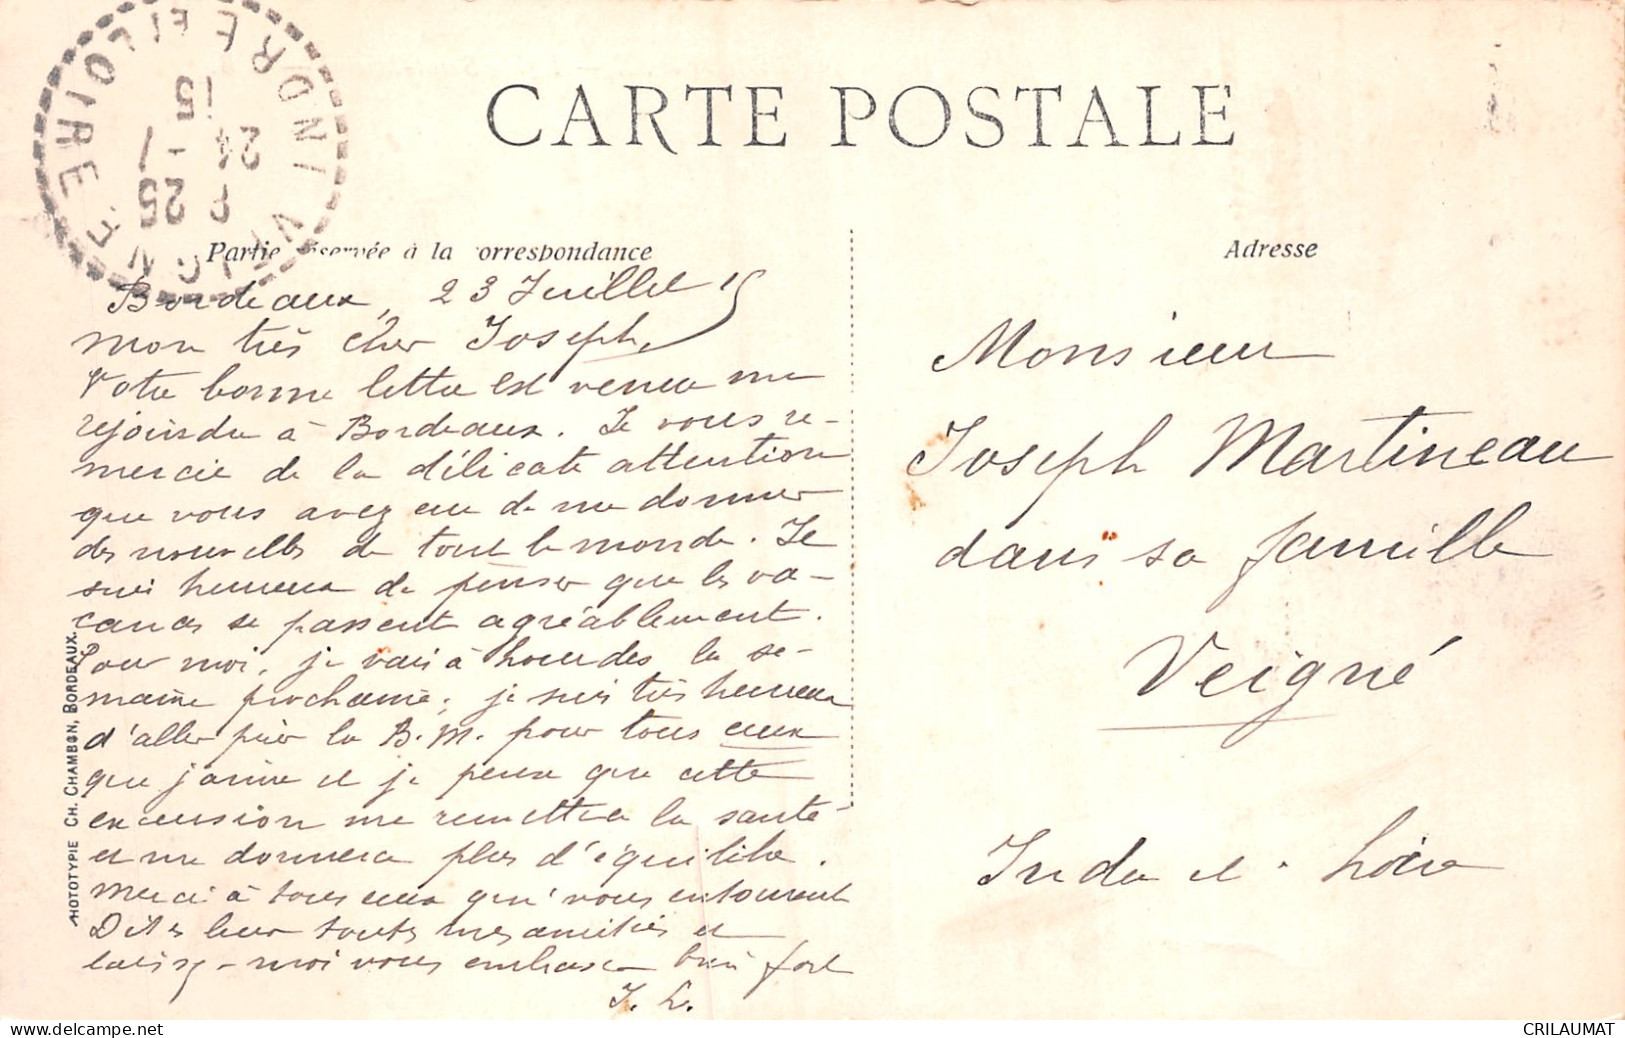 CARTE POSTALE
Partie réservée à la correspondance
Adresse
MONT
VEIGNÉ
INDRE ET LOIRE
15
24 - 7
25
Bordeaux, 23 Juillet 15
mon très cher Joseph,
Votre bonne lettre est venue me
rejoindre à Bordeaux. Je vous re-
mercie de la délicate attention
que vous avez eue de me donner
des nouvelles de tout le monde. Je
suis heureux de penser que les va-
cances se passent agréablement.
Pour moi, je vais à Lourdes la se-
maine prochaine; je suis très heureux
d'aller prier la B. M. pour tous ceux
que j'aime et je pense que cette
excursion me remettra la santé
et me donnera plus d'équilibre.
merci à tous ceux qui vous entourent
Dites leur toutes mes amitiés et
laissez-moi vous embrasser bien fort
J. L.
Monsieur
Joseph Martineau
dans sa famille
Veigné
Indre et Loire
PHOTOTYPIE CH. CHAMBON, BORDEAUX.
CRILAUMAT